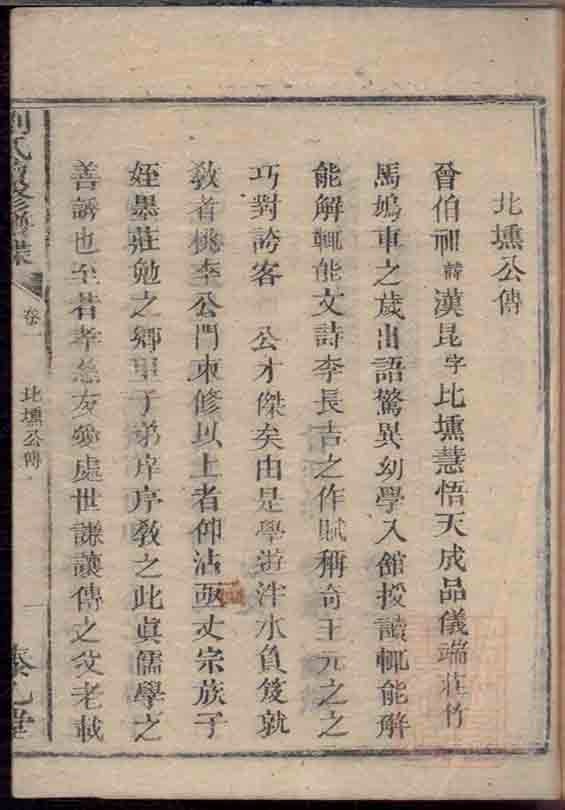 北壎公傳
曾伯祖諱漢昆字北壎慧悟天成品儀端莊竹
馬鳩車之歲出語驚異幼學入館授讀輒能解
能解輒能文詩李長吉之作賦稱奇王元之之
巧對誇客 公才傑矣由是學游泮水負笈就
敎者桃李公門束修以上者仰沾函丈宗族子
姪墨莊勉之鄉里子弟庠序敎之此眞儒學之
善誘也至若孝慈友愛處世謙讓傳之父老載
劉氏 修譜牒
卷一
北壎公傳
一
黎乙堂